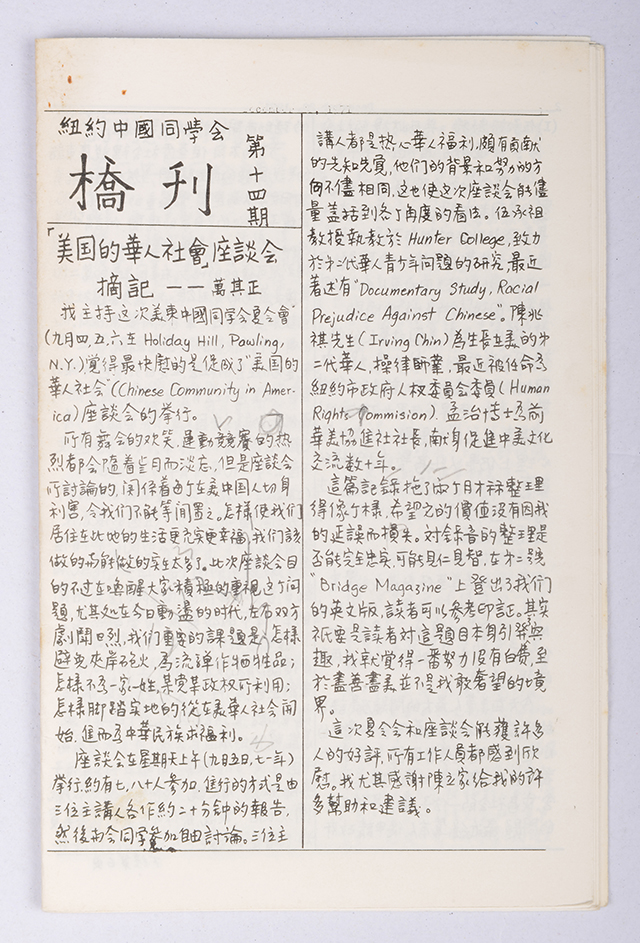 紐約中國同學会
橋刊
第十四期
「美国的華人社會」座談会
摘記 －－ 萬其正
我主持这次美東中國同学会夏令會"
(九月四,五,六在 Holiday Hill, Pawling,
N.Y.) 覚得最快慰的是促成了"美国的
華人社会"(Chinese Community in Amer-
ica) 座談会的挙行。
所有舞会的欢笑,運動競賽的热
烈都会随着岁月而淡忘,但是座談会
所討論的,関係着每个在美中国人切身
利害,令我们不能等闲置之。怎様使我们
居住在此地的生活更充実更幸福,我们該
做的而能做的实在太多了。此次座談会目
的不过在喚醒大家積極的重視这个问
題,尤其处在今日動盪的时代,左右双方
劇鬪日烈,我们重要的課題是:怎様
避免夾岸砲火,為流弹作牺牲品;
怎様不為一家一姓,某党某政权所利用;
怎様脚踏实地的從在美華人社会開
始,進而為中華民族求福利。
座談会在星期天上午(九月五日,七一年)
挙行,約有七,八十人参加,進行的方式是由
三位主講人各作約二十分钟的報告,
然後由令同学参加自由討論。三位主
講人都是热心華人福利,頗有貢献
的先知先覚,他们的背景和努力的方
向不儘相同,这也使这次座談会能儘
量盖括到各个角度的看法。伍承祖
教授執教於 Hunter College,致力
於第二代華人青少年问題的研究,最近
著述有"Documentary Study, Racial
Prejudice Against Chinese"。陳兆
祺先生 (Irving Chin) 為生長在美的第
二代華人,操律師業,最近被任命為
紐約市政府人权委員会委員 (Human
Rights Commision)。孟治博士為前
華美協進社社長,献身促進中美文化
交流数十年。
这篇記録拖了兩个月才祘整理
得像个様,希望它的價值沒有因我
的延誤而損失。対録音的整理是
否能完全忠实,可能見仁見智,在第二號
"Bridge Magazine"上登出了我们
的英文版,読者可以参考印証。其实
祇要是読者対這題目本身引発興
趣,我就覚得一番努力沒有白費,至
於盡善盡美並不是我敢奢望的境
界。
這次夏令会和座談会能獲許多
人的好評,所有工作人員都感到欣
慰。我尤其感謝陳立家给我的許
多幫助和建議。